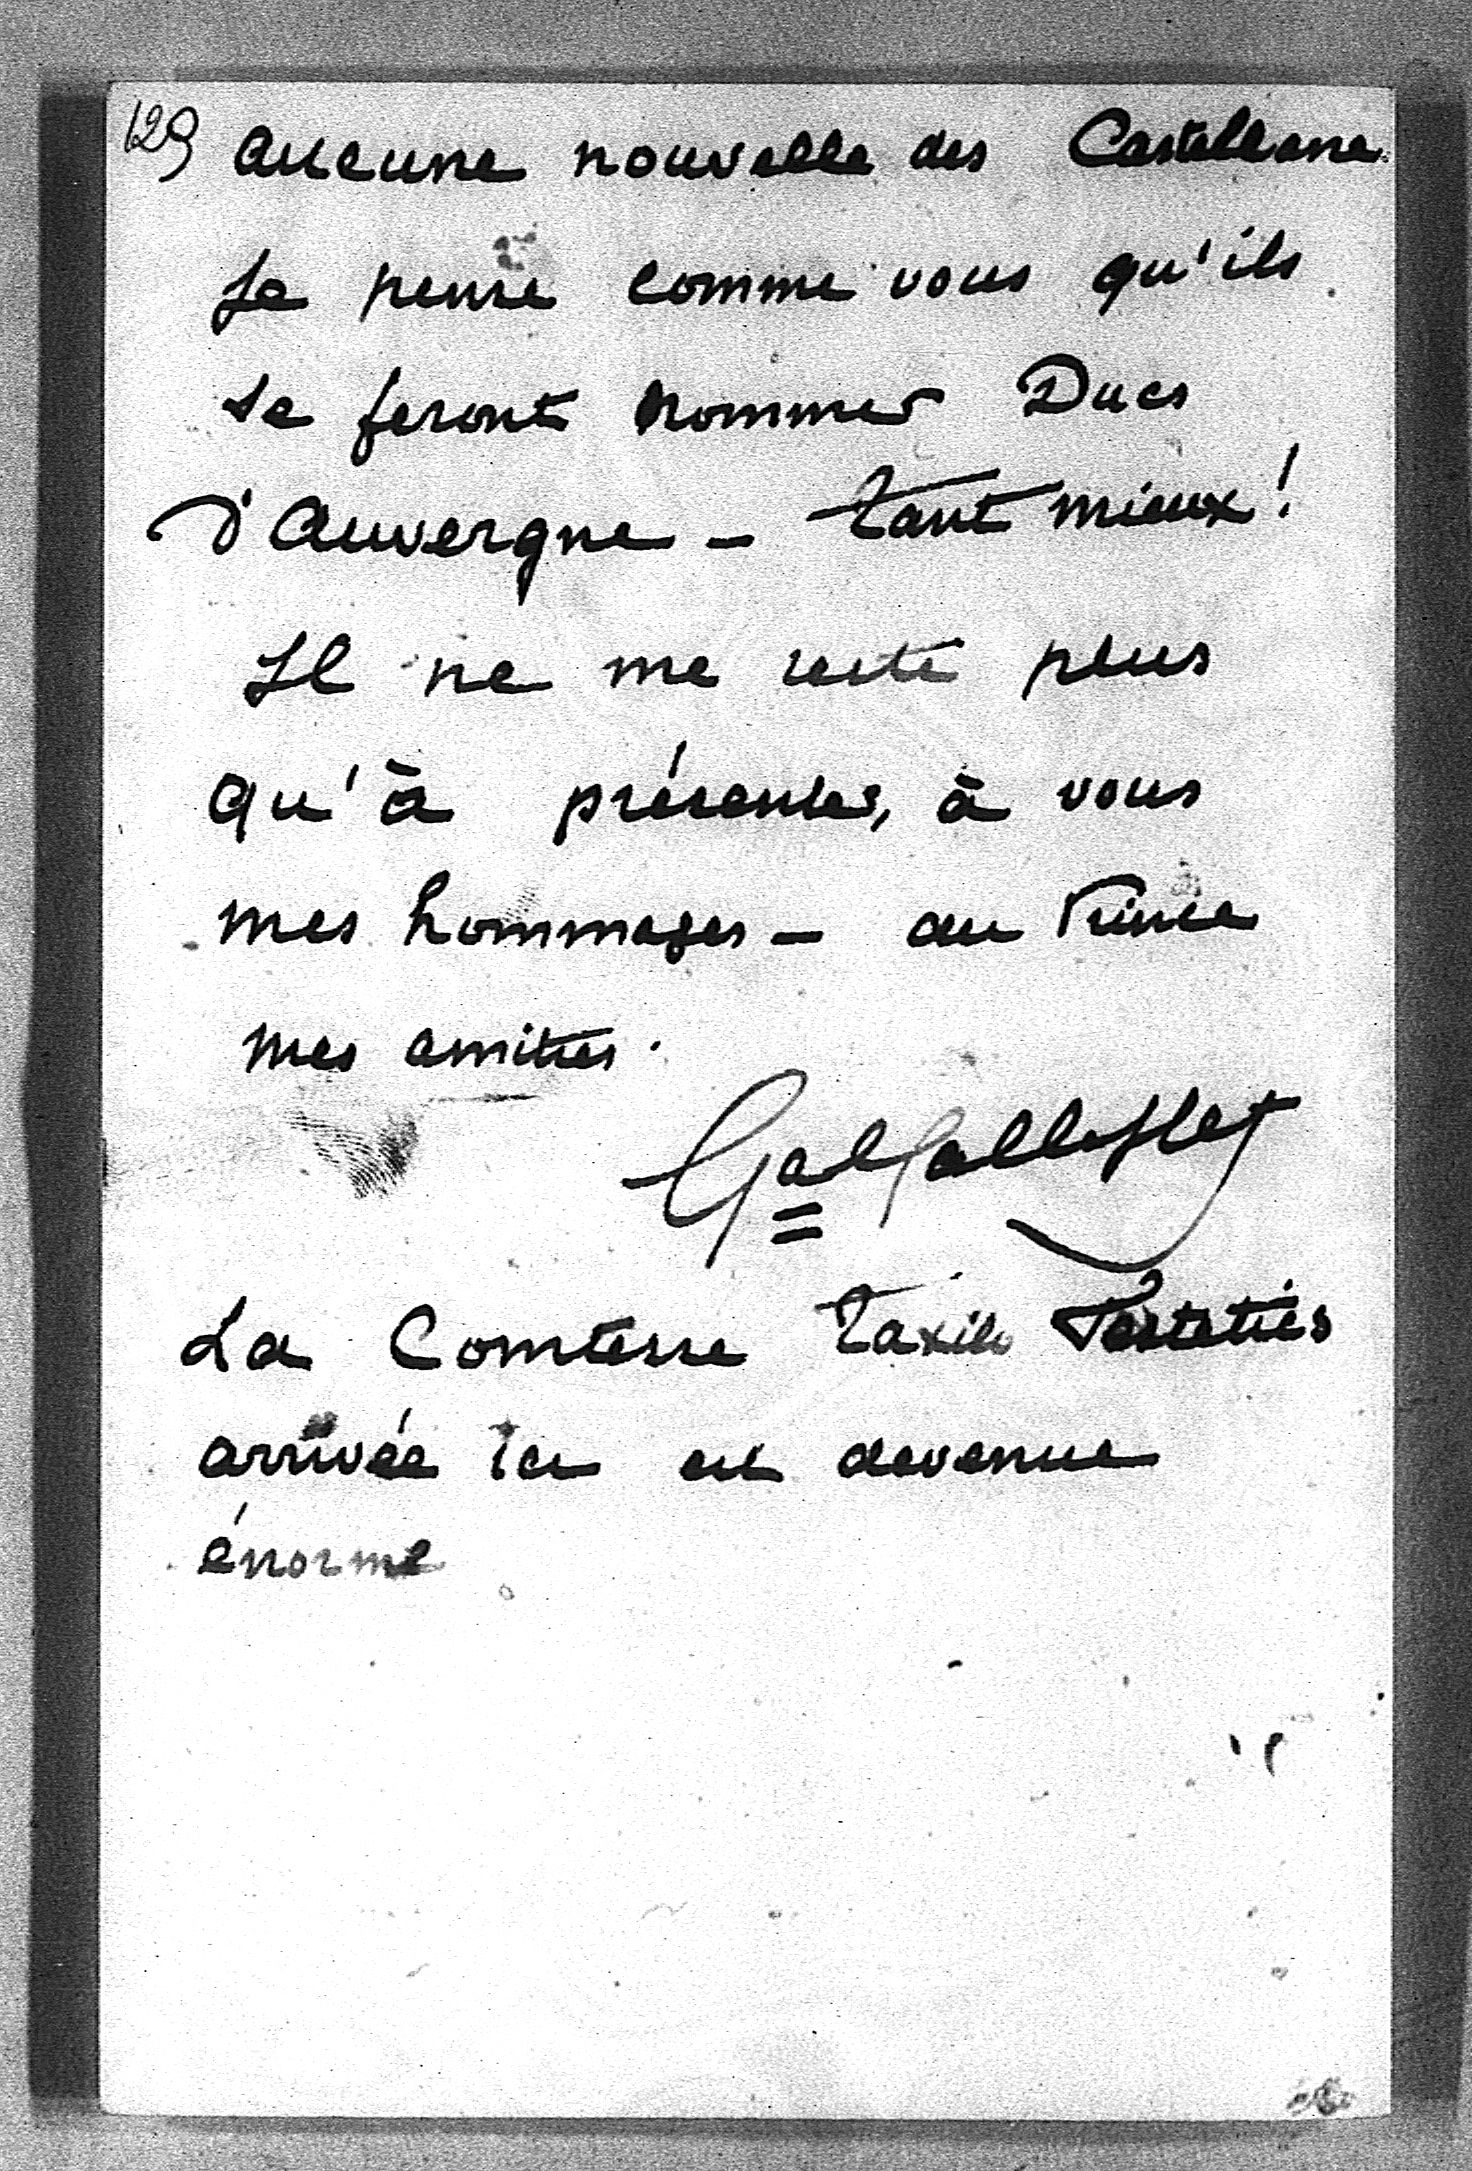 129 aucune nouvelle des Castellane.
Je pense comme vous qu'ils
se feront nommer Ducs
d'Auvergne - tant mieux!
Il ne me reste plus
qu'à présenter, à vous
mes hommages - au Prince
mes amitiés.
Gal Galliffet
La Comtesse Taxile
arrivée ici est devenue
énorme